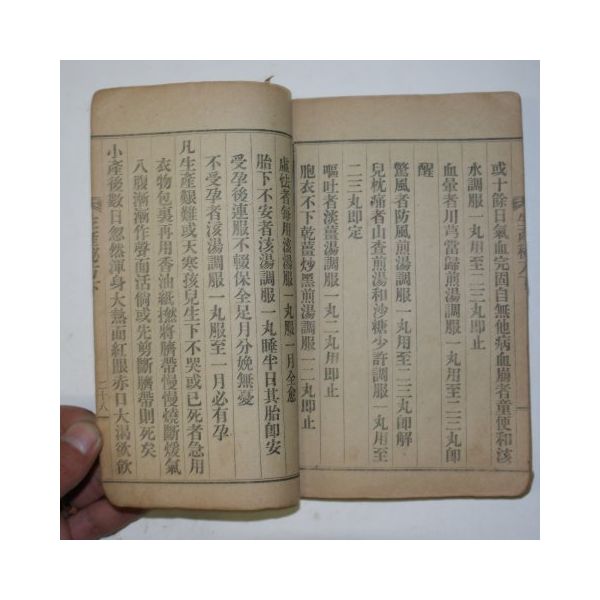 或十餘日氣血完固自無他病血崩者童便和滚
水調服一丸用至二三丸即止
血暈者川芎當歸煎湯調服一丸用至二三丸即
醒
驚風者防風煎湯調服一丸用至二三丸即解
兒枕痛者山查煎湯和沙糖少許調服一丸用至
二三丸即定
嘔吐者淡薑湯調服一丸二丸用即止
胞衣不下乾薑炒黑煎湯調服一二丸即止
生產秘
虛怯者每用滚湯服一丸服一月全愈
胎下不安者滚湯調服一丸睡半日其胎即安
受孕後連服不輟保全足月分娩無憂
不受孕者滚湯調服一丸服至一月必有孕
凡生產艱難或大寒孩兒生下不哭或已死者急用
衣物包裹再用香油紙撚將臍帶慢慢燒斷煖氣
入腹漸漸作聲而活倘或先剪斷臍帶則死矣
小產後數日忽然渾身大熱面紅眼赤口大渴欲飲
生產秘方
二十八